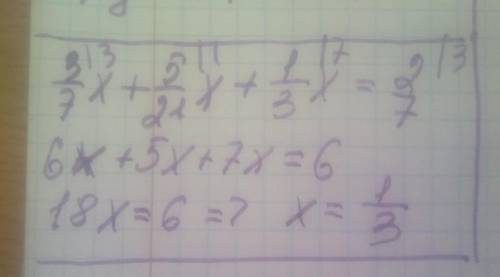 2/7 |3 x + 5/21 |1 x + 1/3 |7 x = 2/7 |3
6x + 5x + 7x = 6
18x = 6 => x = 1/3